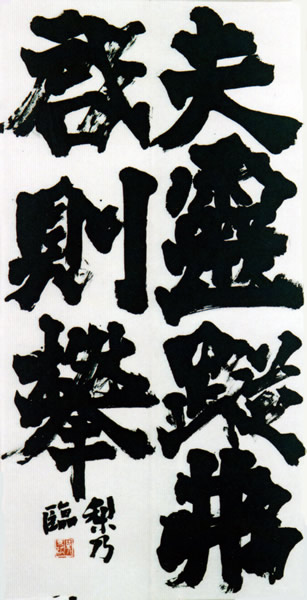 夫靈蹤弗
啓則攀
梨乃
臨